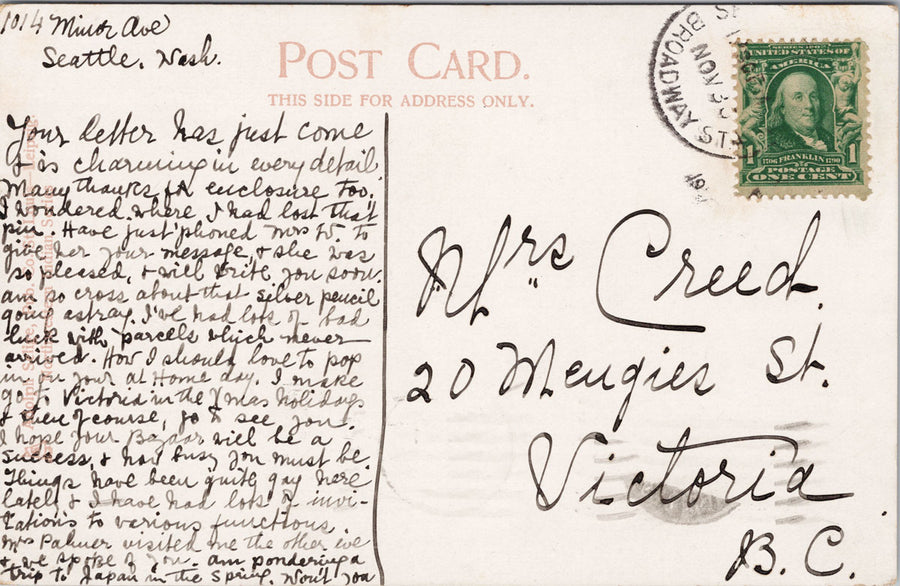 1014 Minor Ave
Seattle. Wash.
POST CARD.
THIS SIDE FOR ADDRESS ONLY.
Your letter has just come
& is charming in every detail.
Many thanks for enclosure too,
I wondered where I had lost that
pin. Have just 'phoned Mrs W. to
give her your message, & she was
so pleased, & will write you soon.
am so cross about that silver pencil
going astray. I've had lots of bad
luck with parcels which never
arrived. How I should love to pop
in on your at Home day. I make
go to Victoria in the Xmas holidays
& then of course, go to see you.
I hope your Bazaar will be a
success, & how busy you must be.
Things have been quite gay here
lately & I have had lots of invi-
tations to various functions.
Mrs Palmer visited me the other eve
& we spoke of you. am pondering a
trip to Japan in the Spring. Won't you
BROADWAY ST
NOV
SERIES 1902
UNITED STATES OF
AMERICA
1706 FRANKLIN 1790
1 POSTAGE 1
ONE CENT
Mrs Creed.
20 Mengies St.
Victoria
B.C.